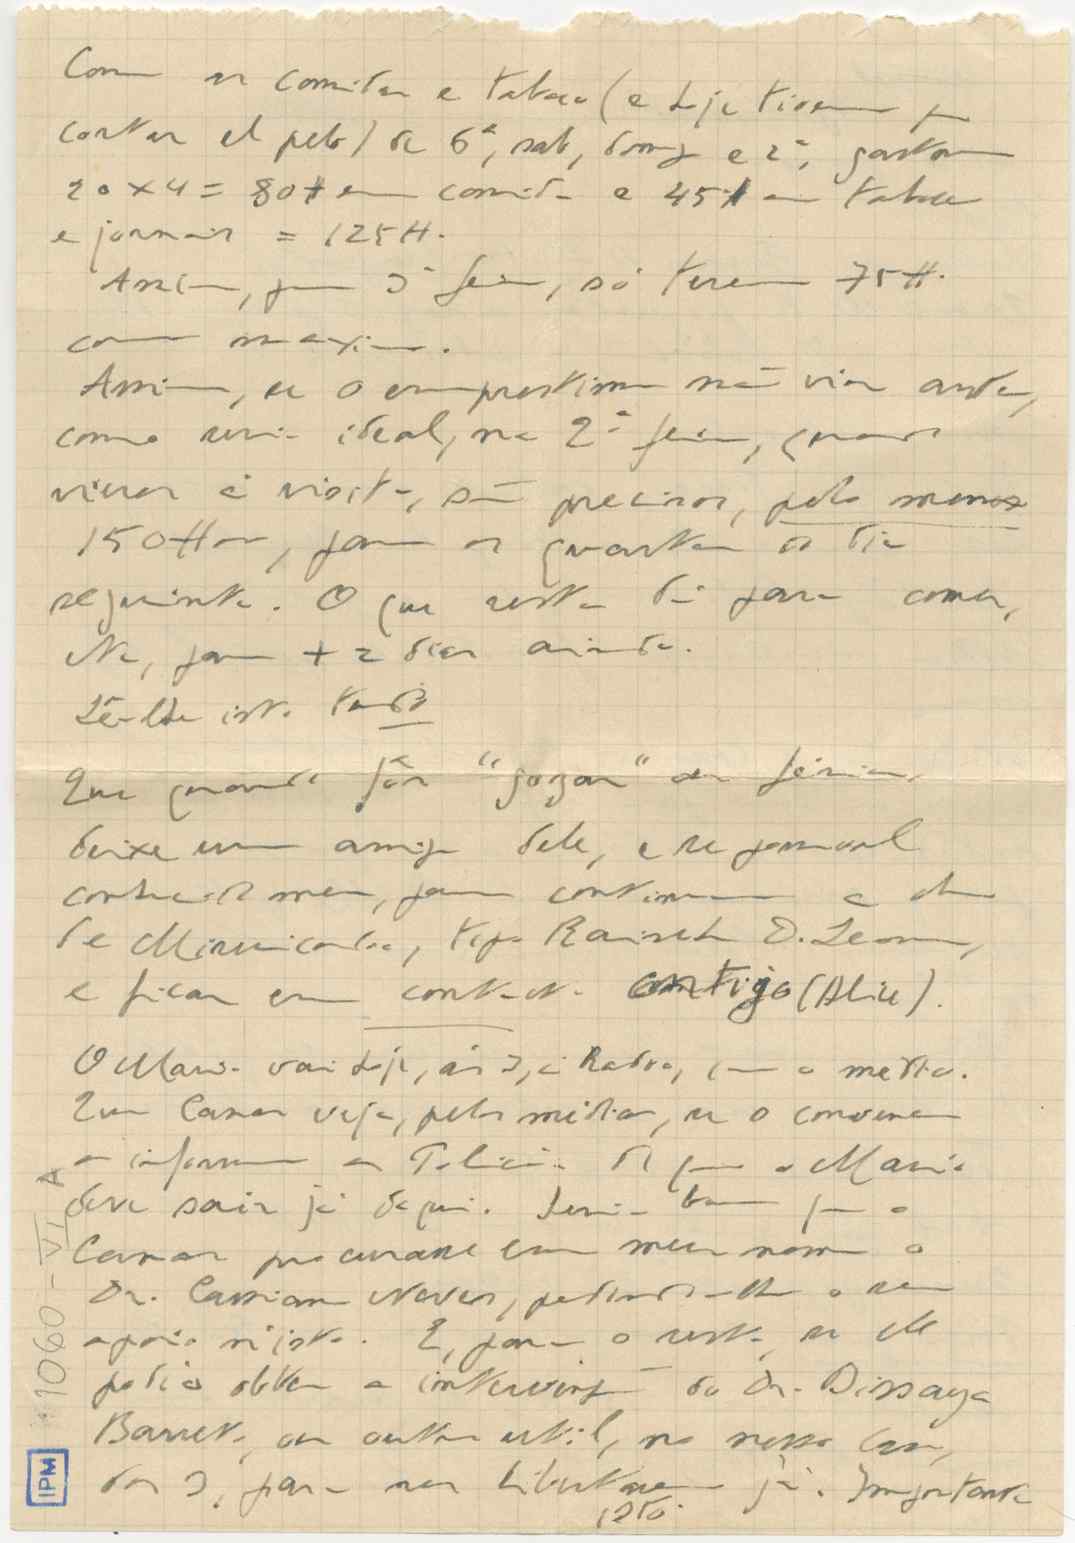 Com as comidas e tabaco (e hoje tivemos que
cortar el pelo) de 6ª, sab, domg e 2ª, gastam
20 x 4 = 80$ em comida e 45$ em tabaco
e jornais = 125$.
Assim, para 3ª feira, só teremos 75$.
como maximo.
Assim, se o emprestimo não vier antes,
como seria ideal, na 2ª feira, quando
vieres à visita, são precisos, pelo menos
150$00, para os quartos do dia
seguinte. O que resta dá para comer,
para + 2 dias ainda.
Lê-lhe isto tudo
Que quando fôr "gozar" as férias,
deixe um amigo dele, e se possivel
conhecido meu, para continuar a obra
de Misericordia, tipo Rainha D. Leonor,
e ficar em contacto contigo (Alice).
O Mario vai hoje, às 3, à Radio, com o medico.
Que Cansar veja, pelos médicos, se o convencem
a informar a Policia de que o Mario
deve sair já daqui. Seria bom que o
procurasse em meu nome o
Dr. Cassiano Neves, pedindo-lhe o seu
apoio nisto. E, para o resto, se ele
podia obter a intervenção do Dr. Bissaya
Barreto, ou outra util, no nosso caso,
dos 3, para nos libertarem já. Importante
isto.
1060 - VI A
IPM